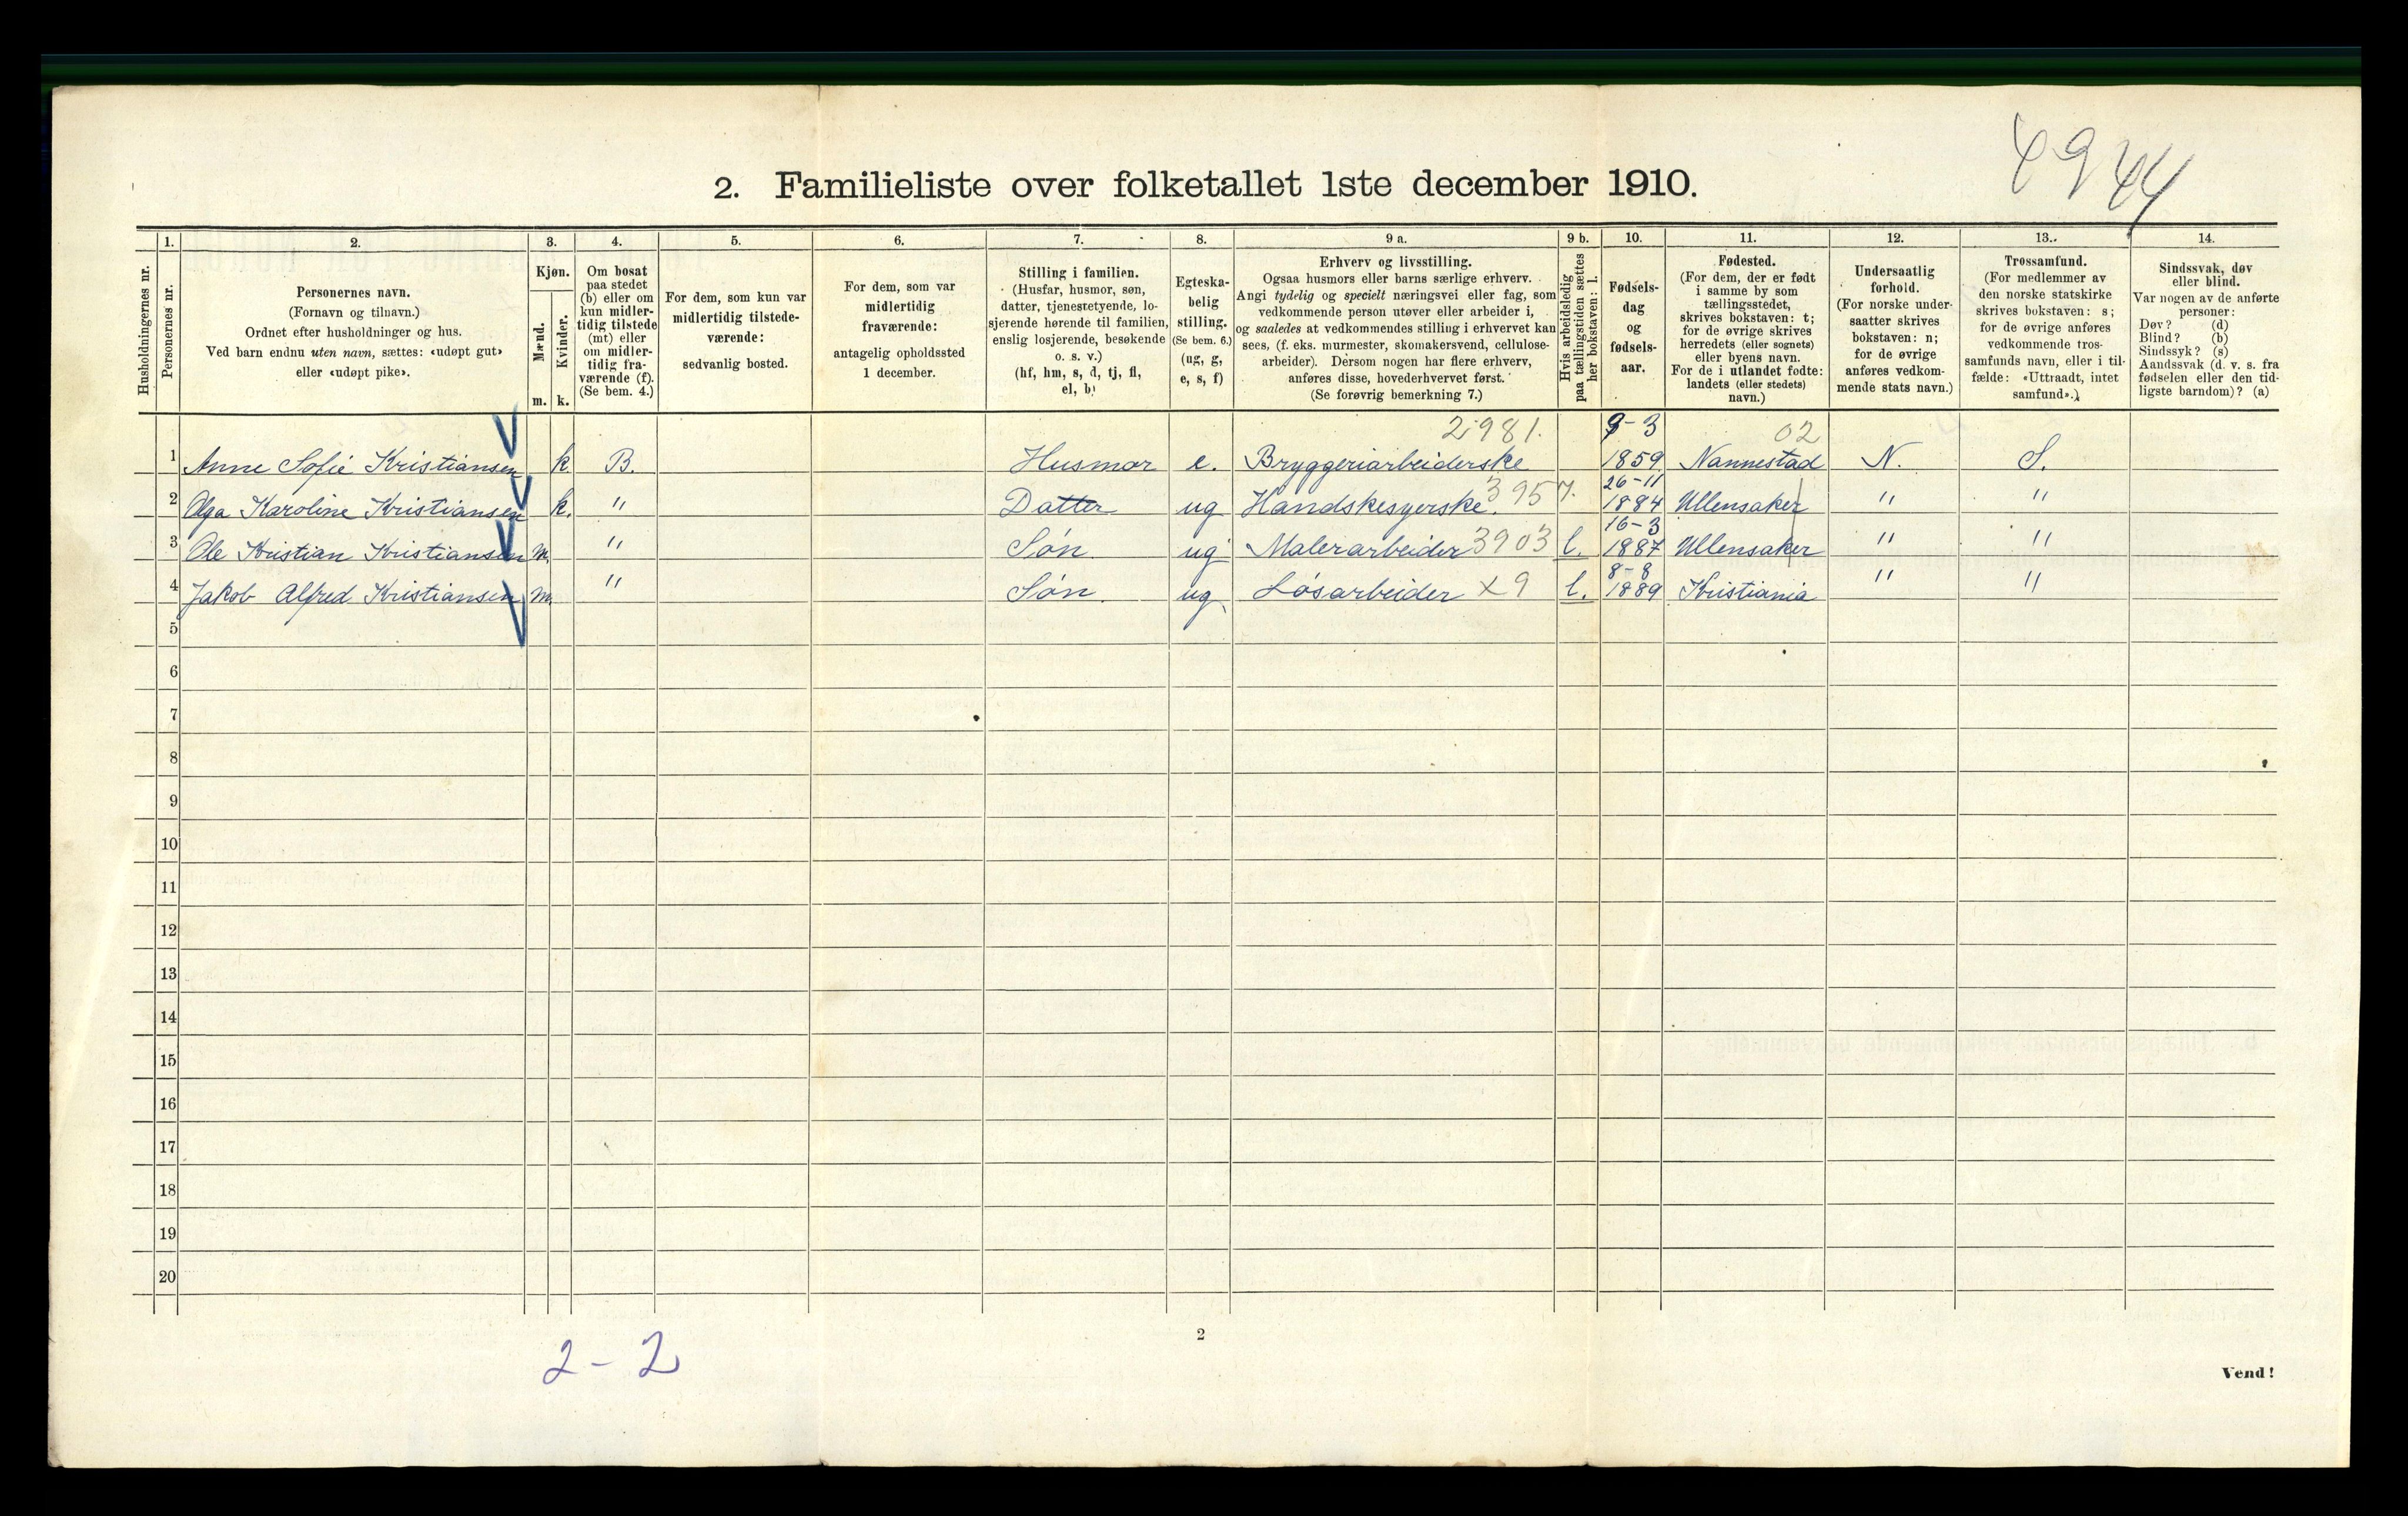 4944
2. Familieliste over folketallet 1ste december 1910.
1. 2. 3. 4. 5. 6. 7. 8. 9 a. 9 b. 10. 11. 12. 13. 14.
Husholdningernes nr.
Personernes nr.
Personernes navn.
(Fornavn og tilnavn.)
Ordnet efter husholdninger og hus.
Ved barn endnu uten navn, sættes: «udøpt gut»
eller «udøpt pike».
Kjøn.
Mænd.
Kvinder.
m. k.
Om bosat
paa stedet
(b) eller om
kun midler-
tidig tilstede
(mt) eller
om midler-
tidig fra-
værende (f).
(Se bem. 4.)
For dem, som kun var
midlertidig tilstede-
værende:
sedvanlig bosted.
For dem, som var
midlertidig
fraværende:
antagelig opholdssted
1 december.
Stilling i familien.
(Husfar, husmor, søn,
datter, tjenestetyende, lo-
sjerende hørende til familien,
enslig losjerende, besøkende
o. s. v.)
(hf, hm, s, d, tj, fl,
el, b)
Egteska-
belig
stilling.
(Se bem. 6.)
(ug, g,
e, s, f)
Erhverv og livsstilling.
Ogsaa husmors eller barns særlige erhverv.
Angi tydelig og specielt næringsvei eller fag, som
vedkommende person utøver eller arbeider i,
og saaledes at vedkommendes stilling i erhvervet kan
sees, (f. eks. murmester, skomakersvend, cellulose-
arbeider). Dersom nogen har flere erhverv,
anføres disse, hovederhvervet først.
(Se forøvrig bemerkning 7.)
Hvis arbeidsledig
paa tællingstiden sættes
her bokstaven: l.
Fødsels-
dag
og
fødsels-
aar.
Fødested.
(For dem, der er født
i samme by som
tællingsstedet,
skrives bokstaven: t;
for de øvrige skrives
herredets (eller sognets)
eller byens navn.
For de i utlandet fødte:
landets (eller stedets)
navn.)
Undersaatlig
forhold.
(For norske under-
saatter skrives
bokstaven: n;
for de øvrige
anføres vedkom-
mende stats navn.)
Trossamfund.
(For medlemmer av
den norske statskirke
skrives bokstaven: s;
for de øvrige anføres
vedkommende tros-
samfunds navn, eller i til-
fælde: «Uttraadt, intet
samfund».)
Sindssvak, døv
eller blind.
Var nogen av de anførte
personer:
Døv? (d)
Blind? (b)
Sindssyk? (s)
Aandssvak (d. v. s. fra
fødselen eller den tid-
ligste barndom)? (a)
2981. 9-3 02
1 Anne Sofie Kristiansen k. B. Husmor e. Bryggeriarbeiderske 1859 Nannestad N. S.
26-11
2 Olga Karoline Kristiansen k. " Datter ug Handskesyerske. 3957. 1884 Ullensaker " "
16-3
3 Ole Kristian Kristiansen m. " Søn. ug Malerarbeider 3903 l. 1887 Ullensaker " "
8-8
4 Jakob Alfred Kristiansen m. " Søn. ug. Løsarbeider X9 l. 1889 Kristiania " "
5
6
7
8
9
10
11
12
13
14
15
16
17
18
19
20
2
2-2
Vend!